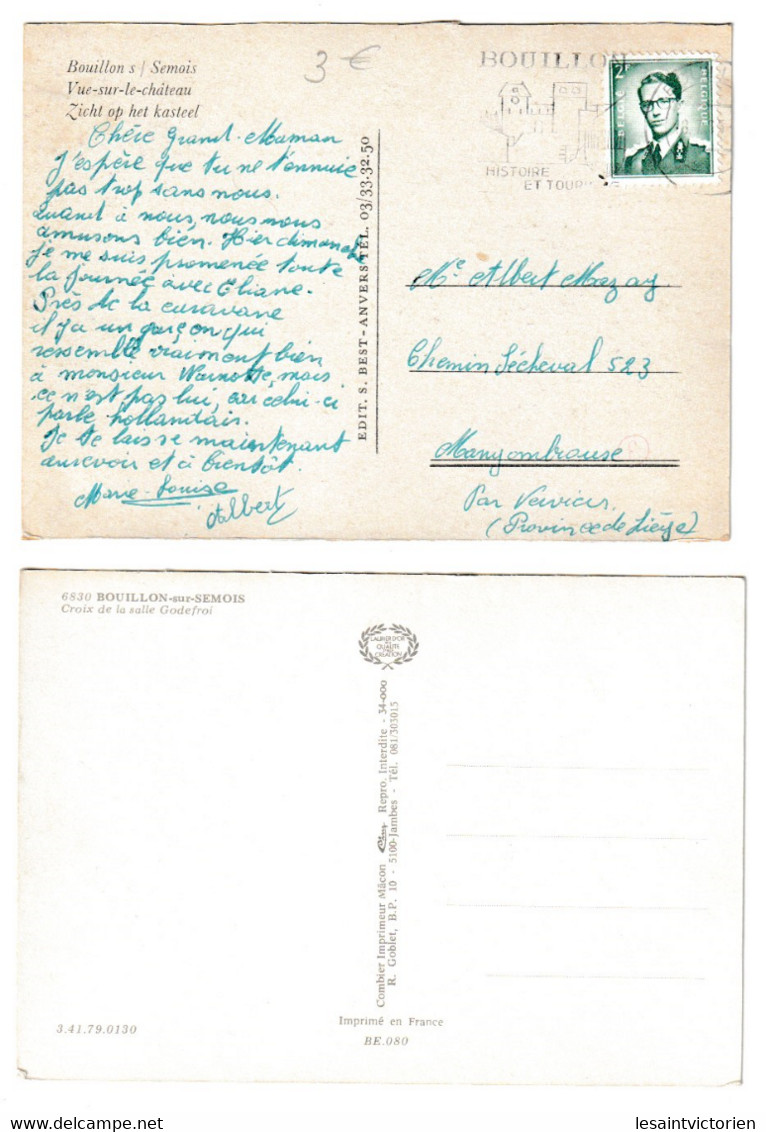 Bouillon s / Semois
Vue-sur-le-château
Zicht op het kasteel
3 €
BOUILLON
HISTOIRE
ET TOURISME
2F
BELGIE
BELGIQUE
Chère Grand-Maman
J'espère que tu ne t'ennuie
pas trop sans nous.
Quand à nous, nous nous
amusons bien. Hier dimanche
je me suis promenée toute
la journée avec Eliane.
Près de la caravane
il y a un garçon qui
ressemble vraiment bien
à monsieur Warnotte, mais
ce n'est pas lui, car celui-ci
parle hollandais.
Je te laisse maintenant
aurevoir et à bientôt.
Marie-Louise
Albert
EDIT. S. BEST - ANVERS TÉL. 03/33.32.50
Me Albert Mazay
Chemin Sécheval 523
Mangombrouse
Par Verviers
(Province de Liège)
6830 BOUILLON-sur-SEMOIS
Croix de la salle Godefroi
LAURIER D'OR
DE
QUALITÉ
CRÉATION
Combier Imprimeur Mâcon Cim Repro. Interdite - 34-000
R. Goblet, B.P. 10 - 5100-Jambes - Tél. 081/303015
3.41.79.0130
Imprimé en France
BE.080
delcampe.net
lesaintvictorien